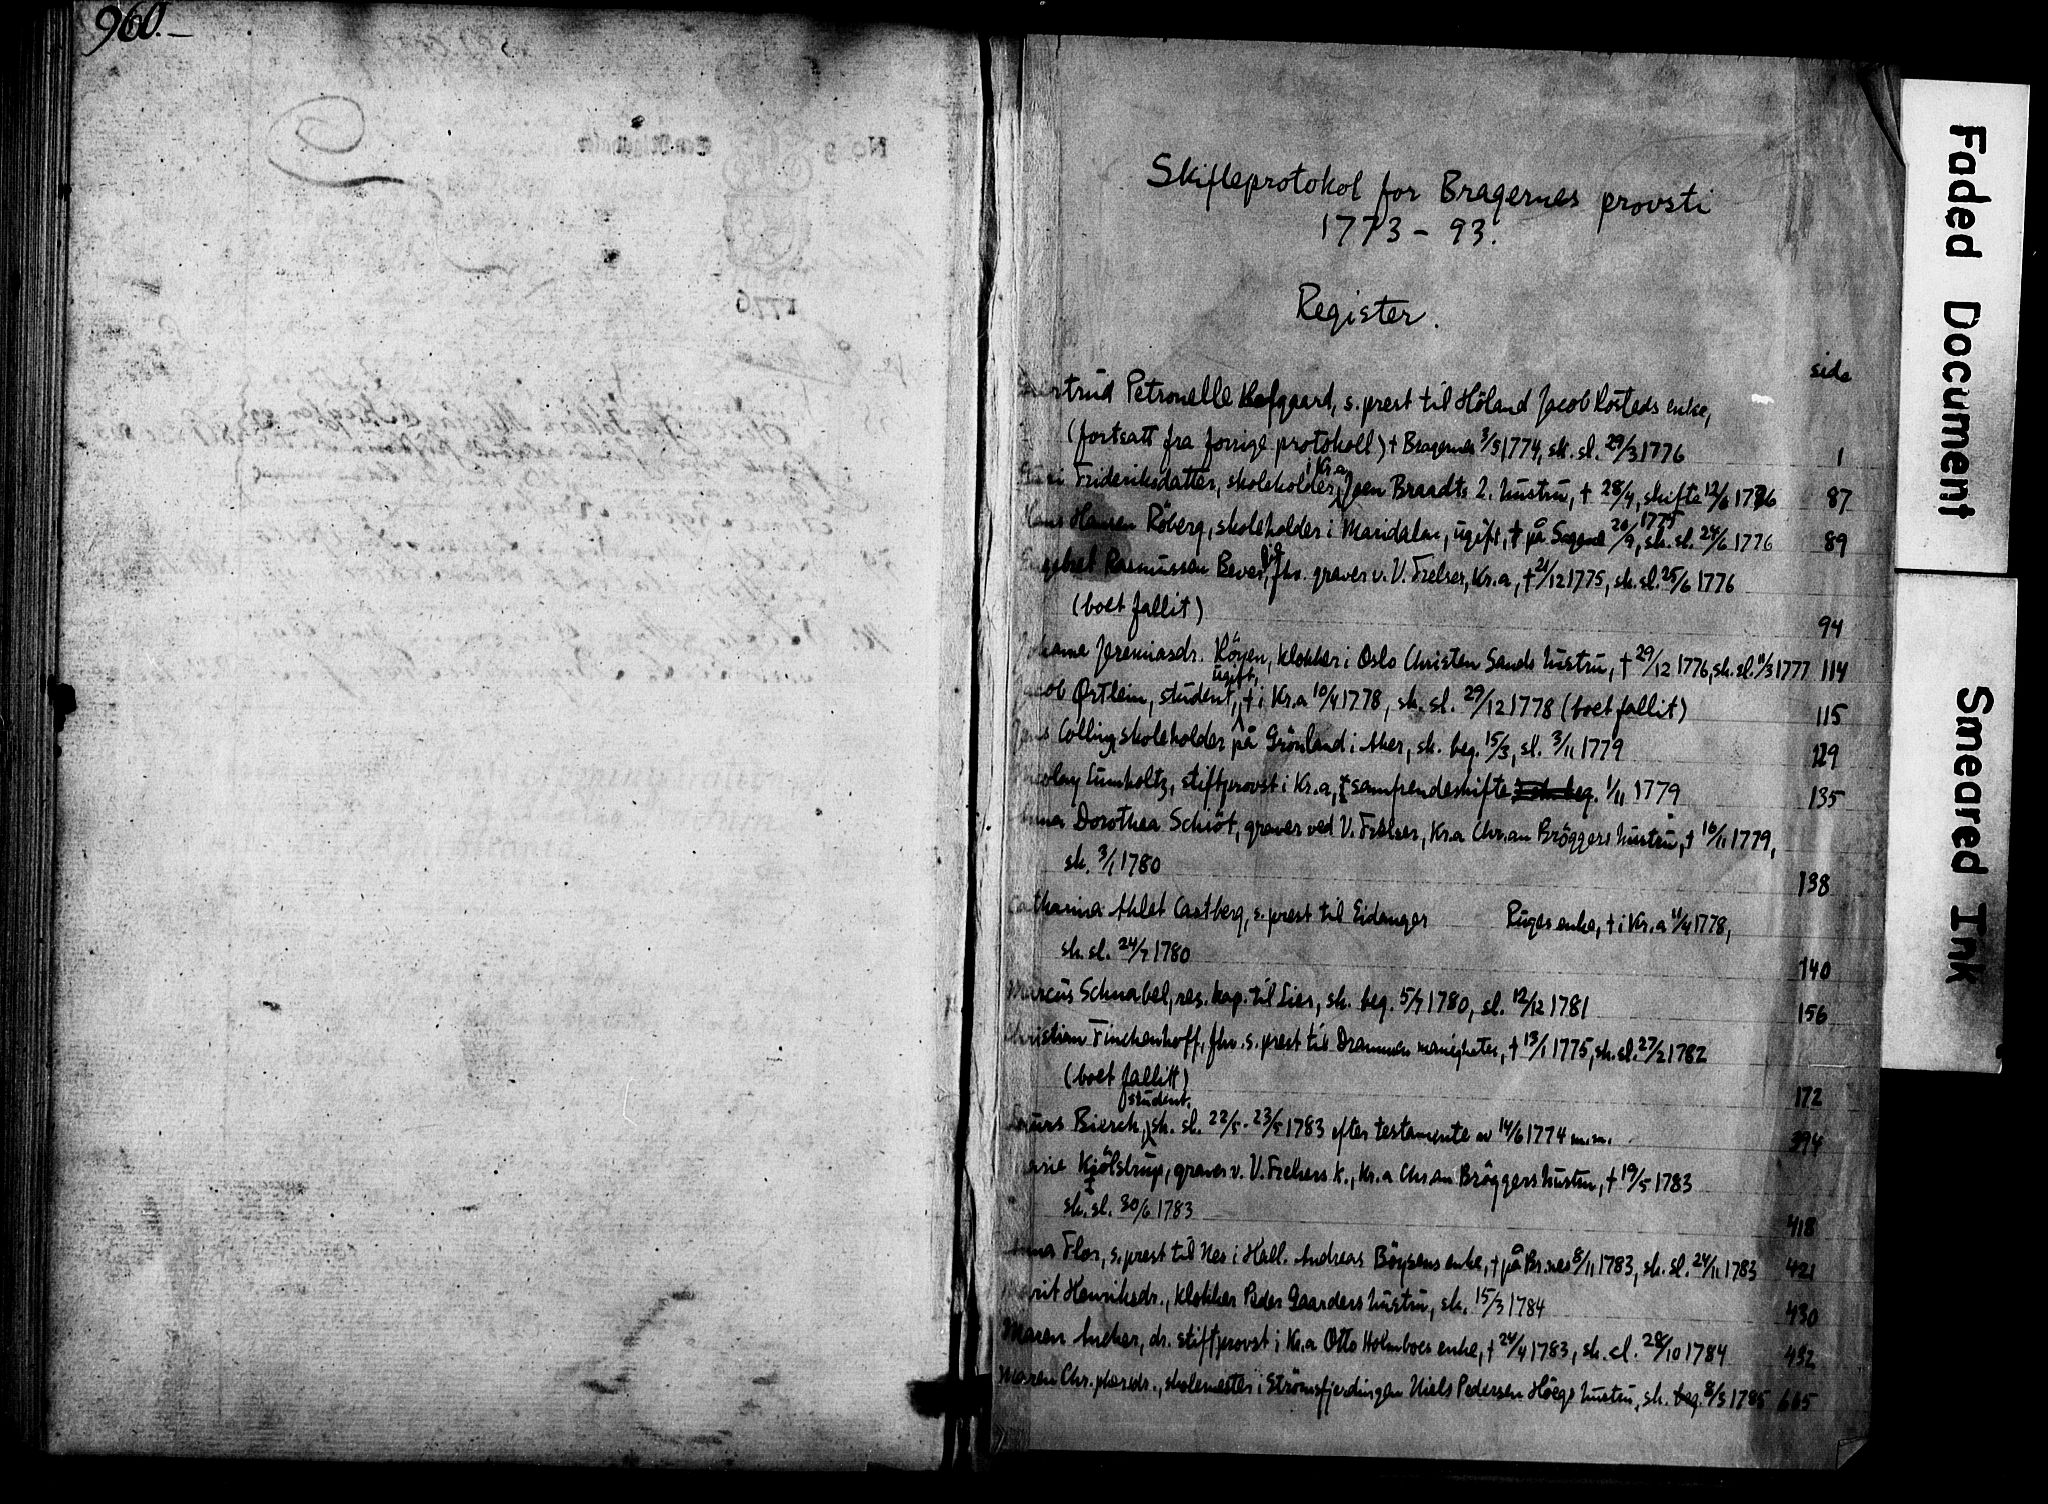 960.–
Skifteprotokol for Bragernes provsti
1773 – 93.
Register.
side
Petronelle Hofgaard, s. prest til Höland Jacob Rosteds enke,
(fortsatt fra forrige protokoll) † Bragernes 3/5 1774, sk. sl. 29/3 1776 1
Frideriksdatter, skoleholder i Kr.a Joen Brandts 2. hustru, † 28/4, skifte 12/6 1776 87
Hans Hansen Röberg, skoleholder i Maridalen, ugift, † på Sagene 20/9 1775, sk. sl. 24/6 1776 89
Rasmussen Bever, fhv. graver v. V. Frelser, Kr.a, † 21/12 1775, sk. sl. 25/6 1776
(boet fallit) 94
Johanne Jeremiasdr. Röyen, klokker i Oslo Christen Sands hustru, † 29/12 1776, sk. sl. 11/3 1777 114
Jacob Østlein, student, ugift, † i Kr.a 10/4 1778, sk. sl. 29/12 1778 (boet fallit) 115
Jens Colling, skoleholder på Grönland i Aker, sk. beg. 15/3, sl. 3/11 1779 129
Nicolay Lumholtz, stiftprovst i Kr.a, † samfrendeskifte 1/11 1779 135
Anna Dorothea Schiöt, graver ved V. Frelser, Kr.a Chr.an Bröggers hustru, † 16/11 1779,
sk. 3/1 1780 138
Catharina Ahlet Castberg, s. prest til Eidanger Ruges enke, † i Kr.a 11/4 1778,
sk. sl. 24/7 1780 140
Marcus Schnabel, res. kap. til Lier, sk. beg. 5/7 1780, sl. 12/12 1781 156
Christian Finckenhoff, fhv. s. prest til Drammen menigheter, † 13/1 1775, sk. sl. 27/2 1782
(boet fallitt) 172
Laurs Bierch, student, sk. sl. 22/5 - 23/5 1783 efter testamente av 14/6 1774 m.m. 394
Kjölstrup, graver v. V. Frelsers k., Kr.a Chr.an Bröggers hustru, † 19/5 1783
sk. sl. 30/6 1783 418
Anna Flor, s. prest til Nes i Hall. Andreas Böysens enke, † på Br.nes 8/11 1783, sk. sl. 24/11 1783 421
Henriksdr., klokker Peder Gaarders hustru, sk. 15/3 1784 430
Maren Ancher, dr. stiftprovst i Kr.a Otto Holmboes enke, † 24/4 1783, sk. sl. 28/10 1784 432
Maren Chr.phersdr., skolemester i Strömsfjerdingen Niels Pedersen Höegs hustru, sk. beg. 8/3 1785 665
Faded Document
Smeared Ink